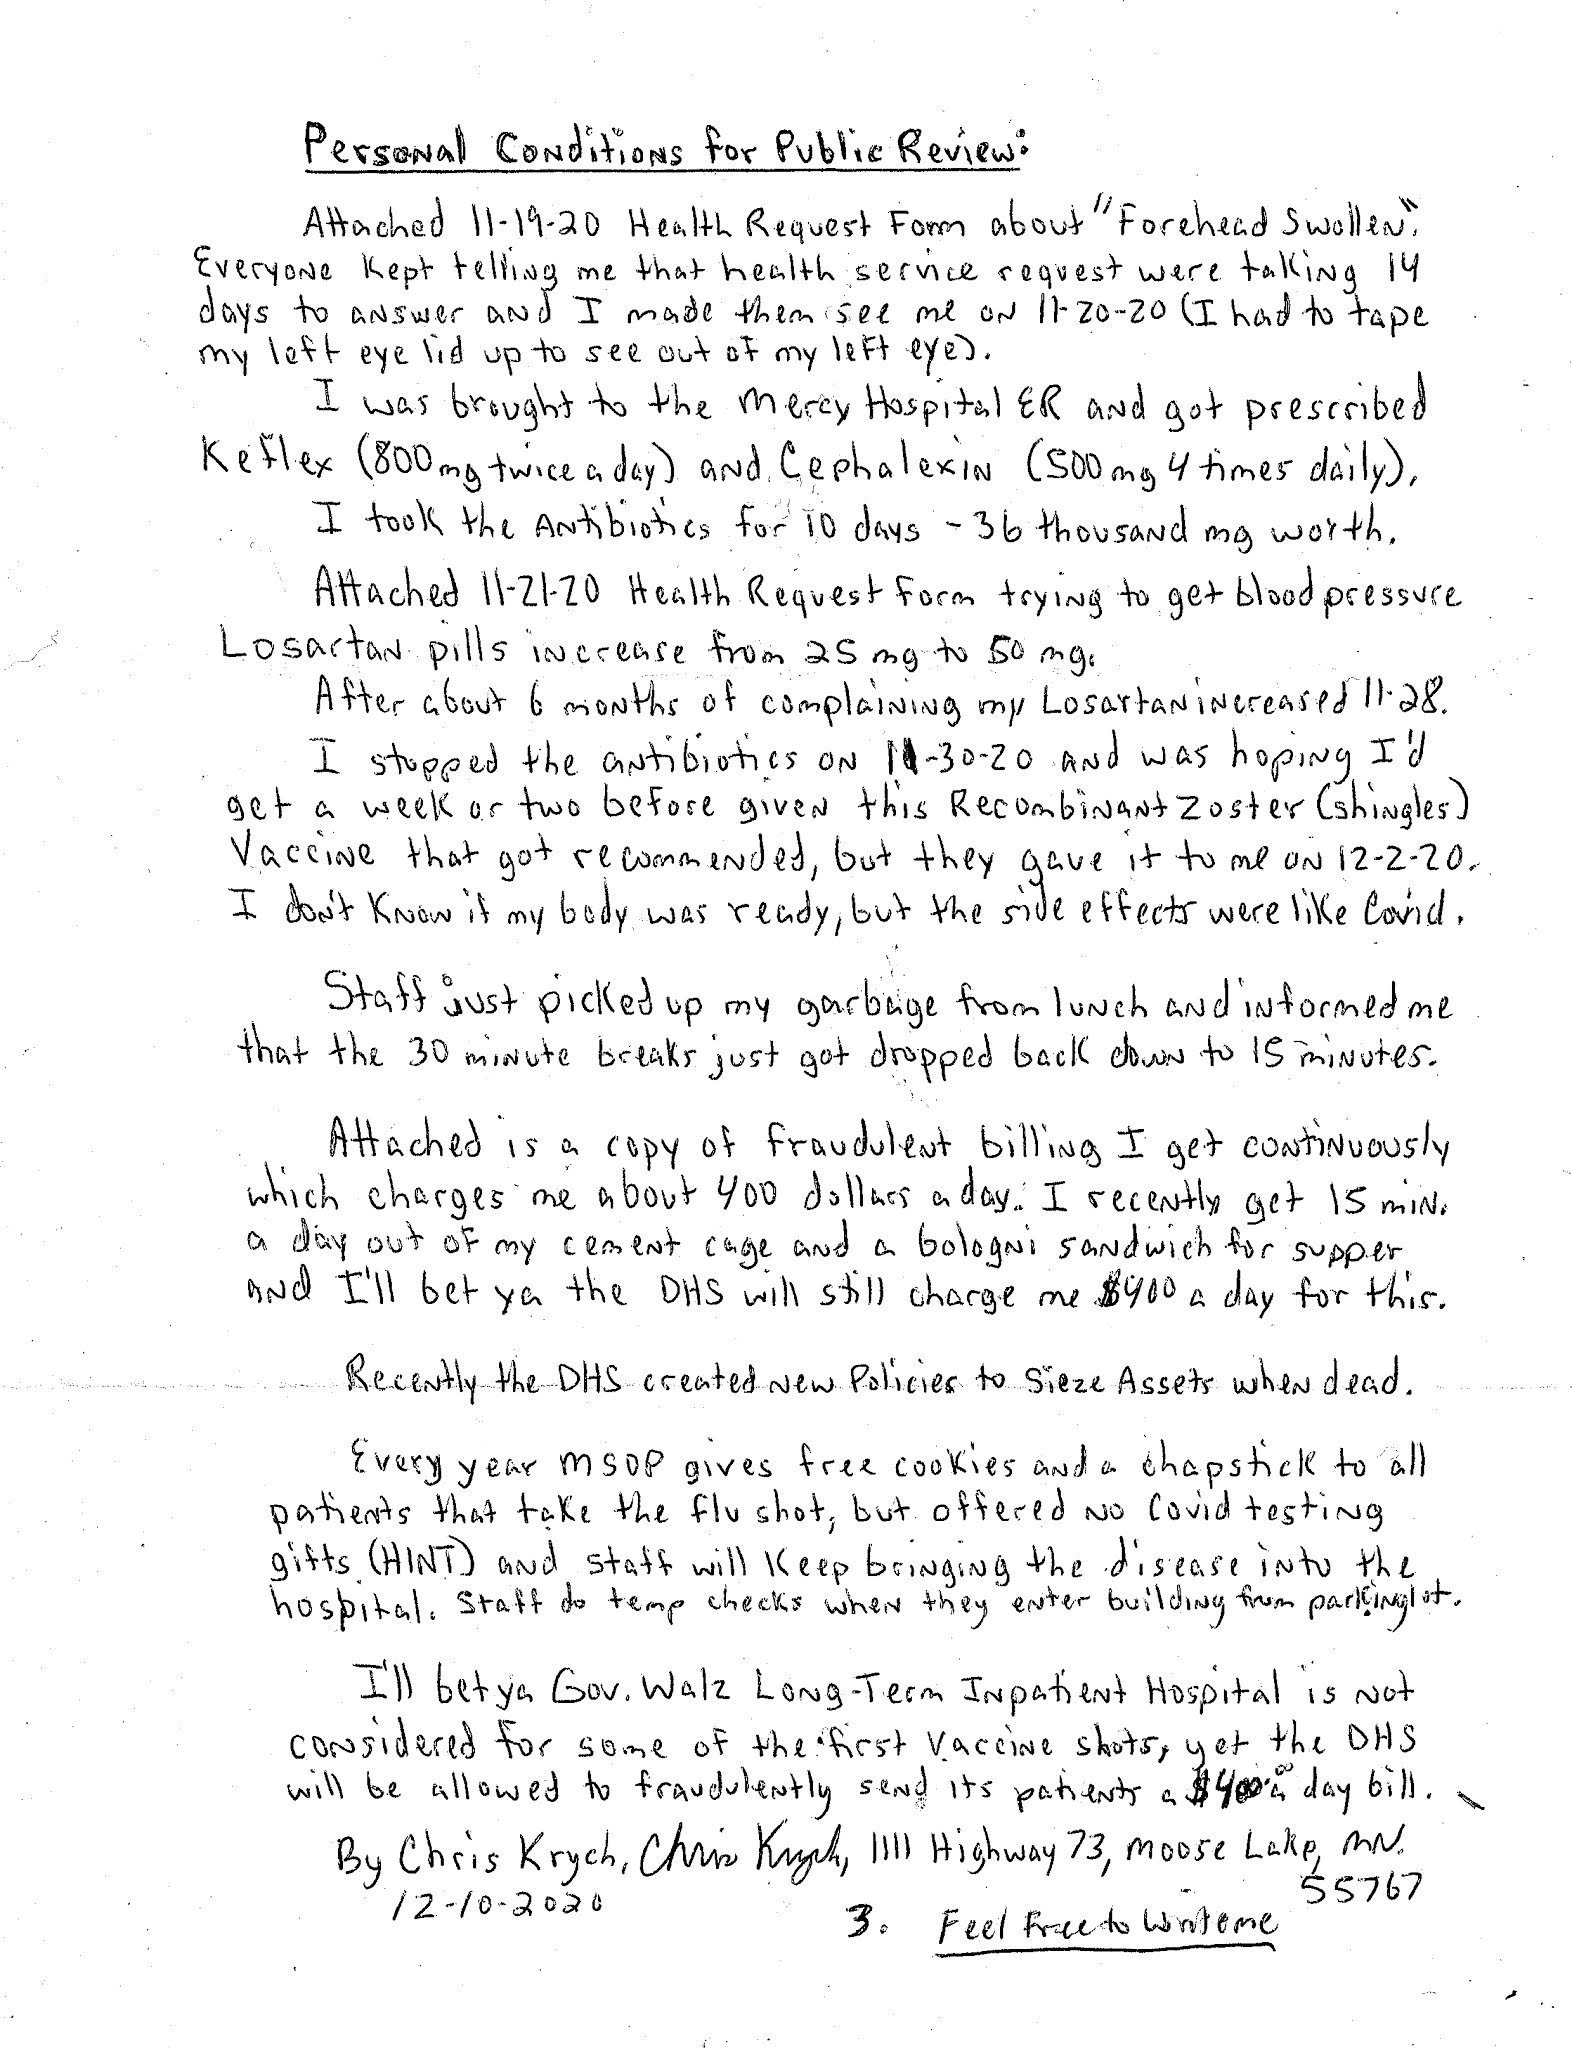 Personal Conditions for Public Review:
Attached 11-19-20 Health Request Form about "Forehead Swollen".
Everyone kept telling me that health service request were taking 14
days to answer and I made them see me on 11-20-20 (I had to tape
my left eye lid up to see out of my left eye).
I was brought to the Mercy Hospital ER and got prescribed
Keflex (800mg twice a day) and Cephalexin (500mg 4 times daily).
I took the Antibiotics for 10 days - 36 thousand mg worth.
Attached 11-21-20 Health Request Form trying to get blood pressure
Losartan pills increase from 25 mg to 50 mg.
After about 6 months of complaining my Losartan increased 11-28.
I stopped the antibiotics on 11-30-20 and was hoping I'd
get a week or two before given this Recombinant Zoster (shingles)
Vaccine that got recommended, but they gave it to me on 12-2-20.
I don't know if my body was ready, but the side effects were like Covid.
Staff just picked up my garbage from lunch and informed me
that the 30 minute breaks just got dropped back down to 15 minutes.
Attached is a copy of fraudulent billing I get continuously
which charges me about 400 dollars a day. I recently get 15 min.
a day out of my cement cage and a bologni sandwich for supper
and I'll bet ya the DHS will still charge me $400 a day for this.
Recently the DHS created new Policies to Sieze Assets when dead.
Every year MSOP gives free cookies and a chapstick to all
patients that take the flu shot, but offered no Covid testing
gifts (HINT) and staff will keep bringing the disease into the
hospital. Staff do temp checks when they enter building from parkinglot.
I'll bet ya Gov. Walz Long-Term Inpatient Hospital is not
considered for some of the first Vaccine shots, yet the DHS
will be allowed to fraudulently send its patients a $400.00 a day bill.
By Chris Krych, Chris Krych, 1111 Highway 73, Moose Lake, MN.
55767
12-10-2020
3. Feel Free to Write me